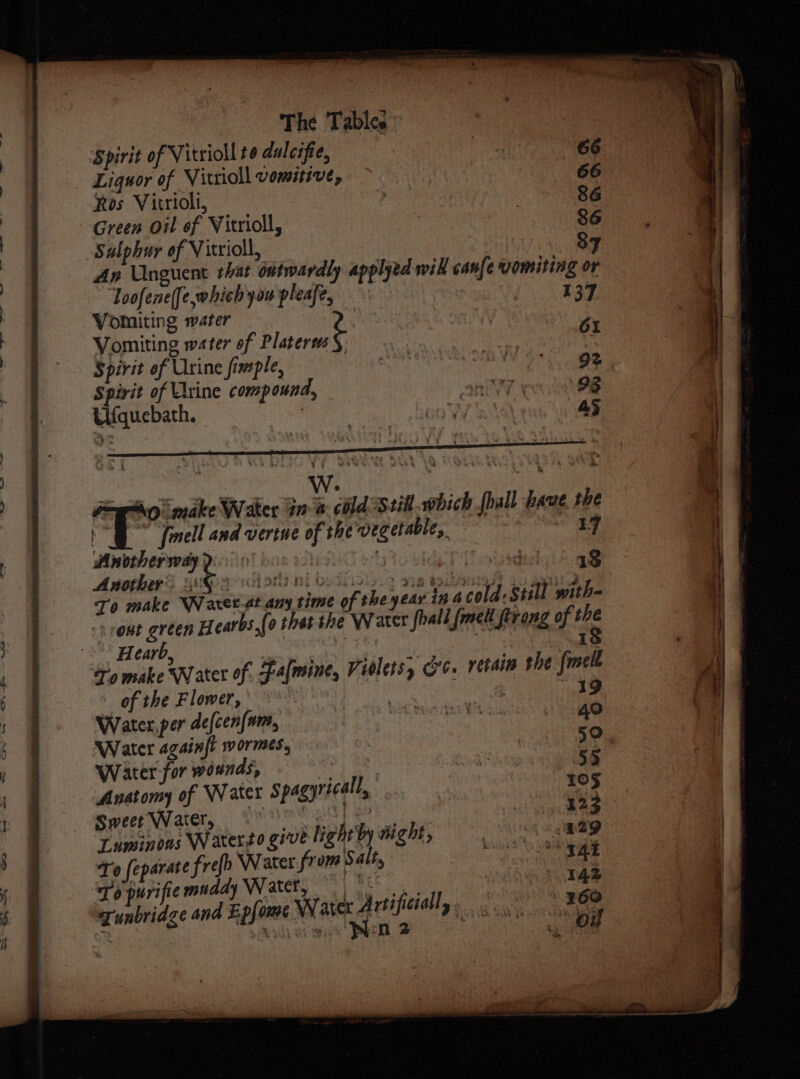 The Tables
Spirit of Vitrioll to dulcifie, 66
Liquor of Vitrioll vomitive, 66
Ros Vitrioli, 86
Green Oil of Vitrioll, 86
Sulphur of Vitrioll, 87
An Unguent that outwardly applyed will cause vomiting or
loosenesse, which you please, 137
Vomiting water
Vomiting water of Platerus } 61
Spirit of Urine simple, 92
Spirit of Urine compound, 93
Usquebath. 45
W.
To make Water in a cold Still which shall have the
smell and vertue of the vegetable, 17
Another way
Another } 18
To make Water at any time of the year in a cold Still with-
out green Hearbs, so that the Water shall smell strong of the
Hearb, 18
To make Water of Jasmine, Violets, &c. retain the smell
of the Flower, 19
Water per descensum, 40
Water against wormes, 50
Water for wounds, 55
Anatomy of Water Spagyricall, 105
Sweet Water, 123
Luminous Water to give light by night, 129
To separate fresh Water from Salt, 141
To purifie muddy Water, 142
Tunbridge and Epsome Water Artificially 160
N n 2 Oil